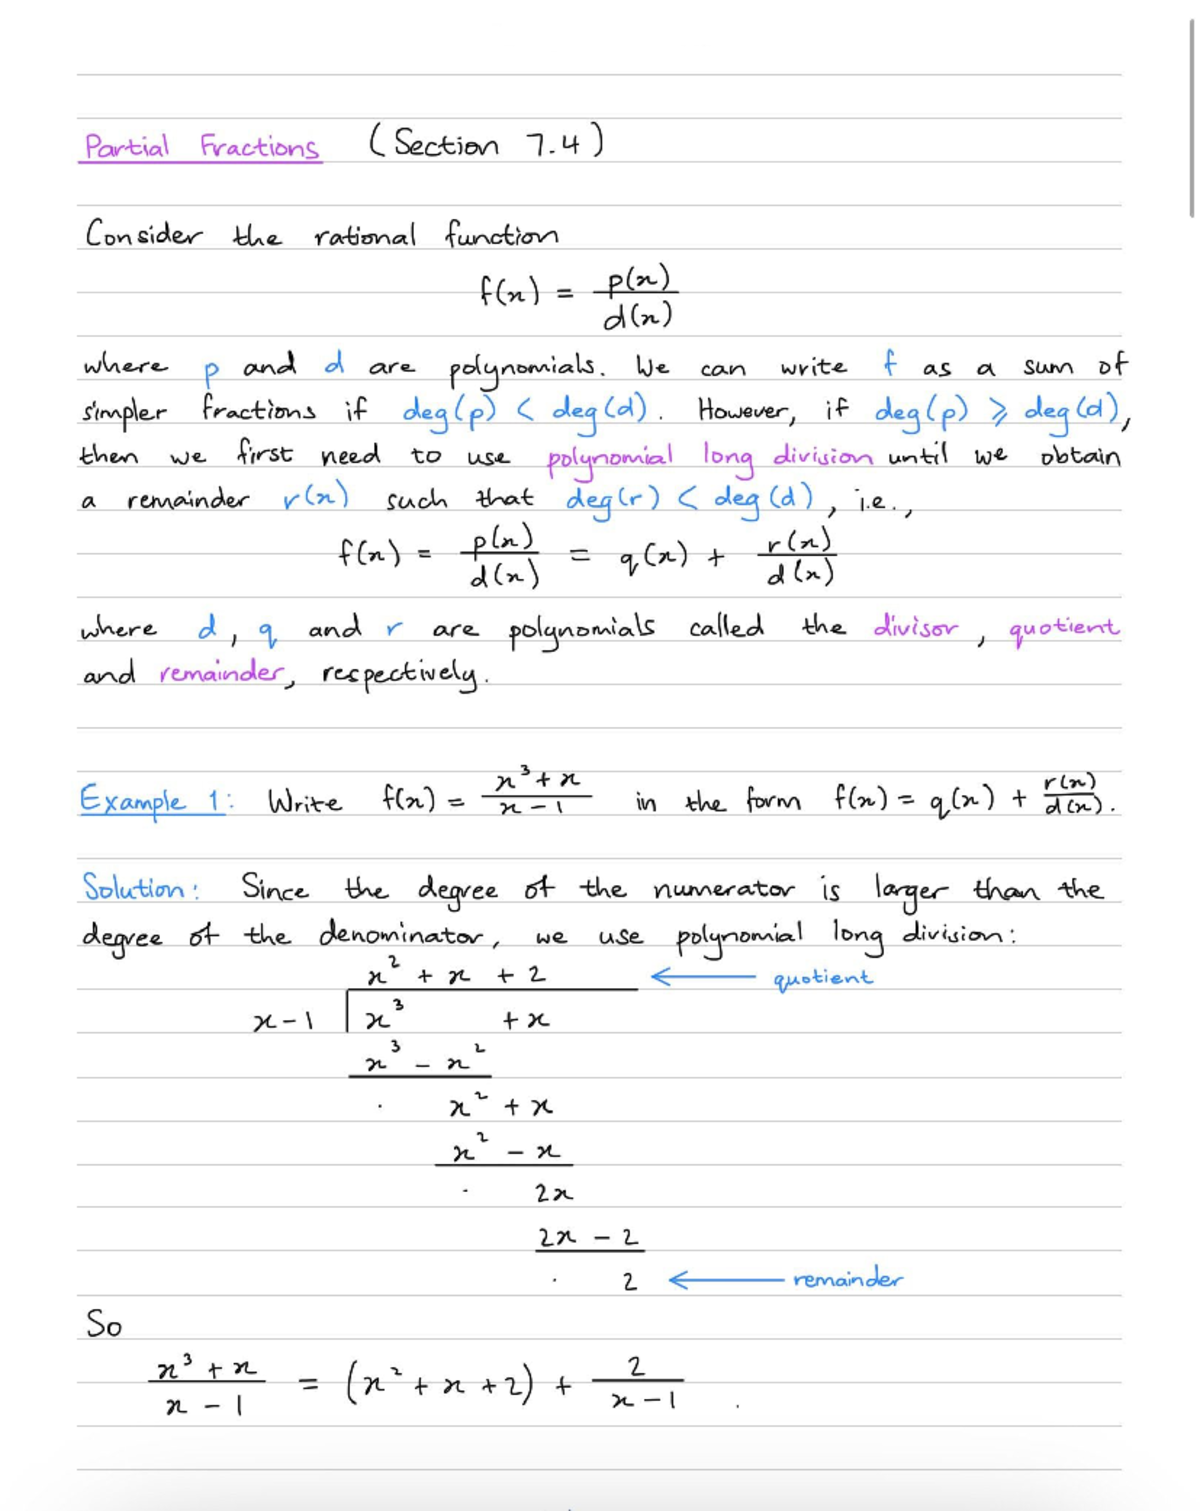 Partial Fractions (Section 7.4)
Consider the rational function
f(x) = p(x)/d(x)
where p and d are polynomials. We can write f as a sum of
simpler fractions if deg(p) < deg(d). However, if deg(p) ⩾ deg(d),
then we first need to use polynomial long division until we obtain
a remainder r(x) such that deg(r) < deg(d), i.e.,
f(x) = p(x)/d(x) = q(x) + r(x)/d(x)
where d, q and r are polynomials called the divisor, quotient
and remainder, respectively.
Example 1: Write f(x) = x³+x/x-1 in the form f(x) = q(x) + r(x)/d(x).
Solution: Since the degree of the numerator is larger than the
degree of the denominator, we use polynomial long division:
x² + x + 2 ← quotient
x-1 x³ + x
x³ - x²
. x² + x
x² - x
. 2x
2x - 2
. 2 ← remainder
So
x³ + x/x - 1 = (x² + x + 2) + 2/x-1.